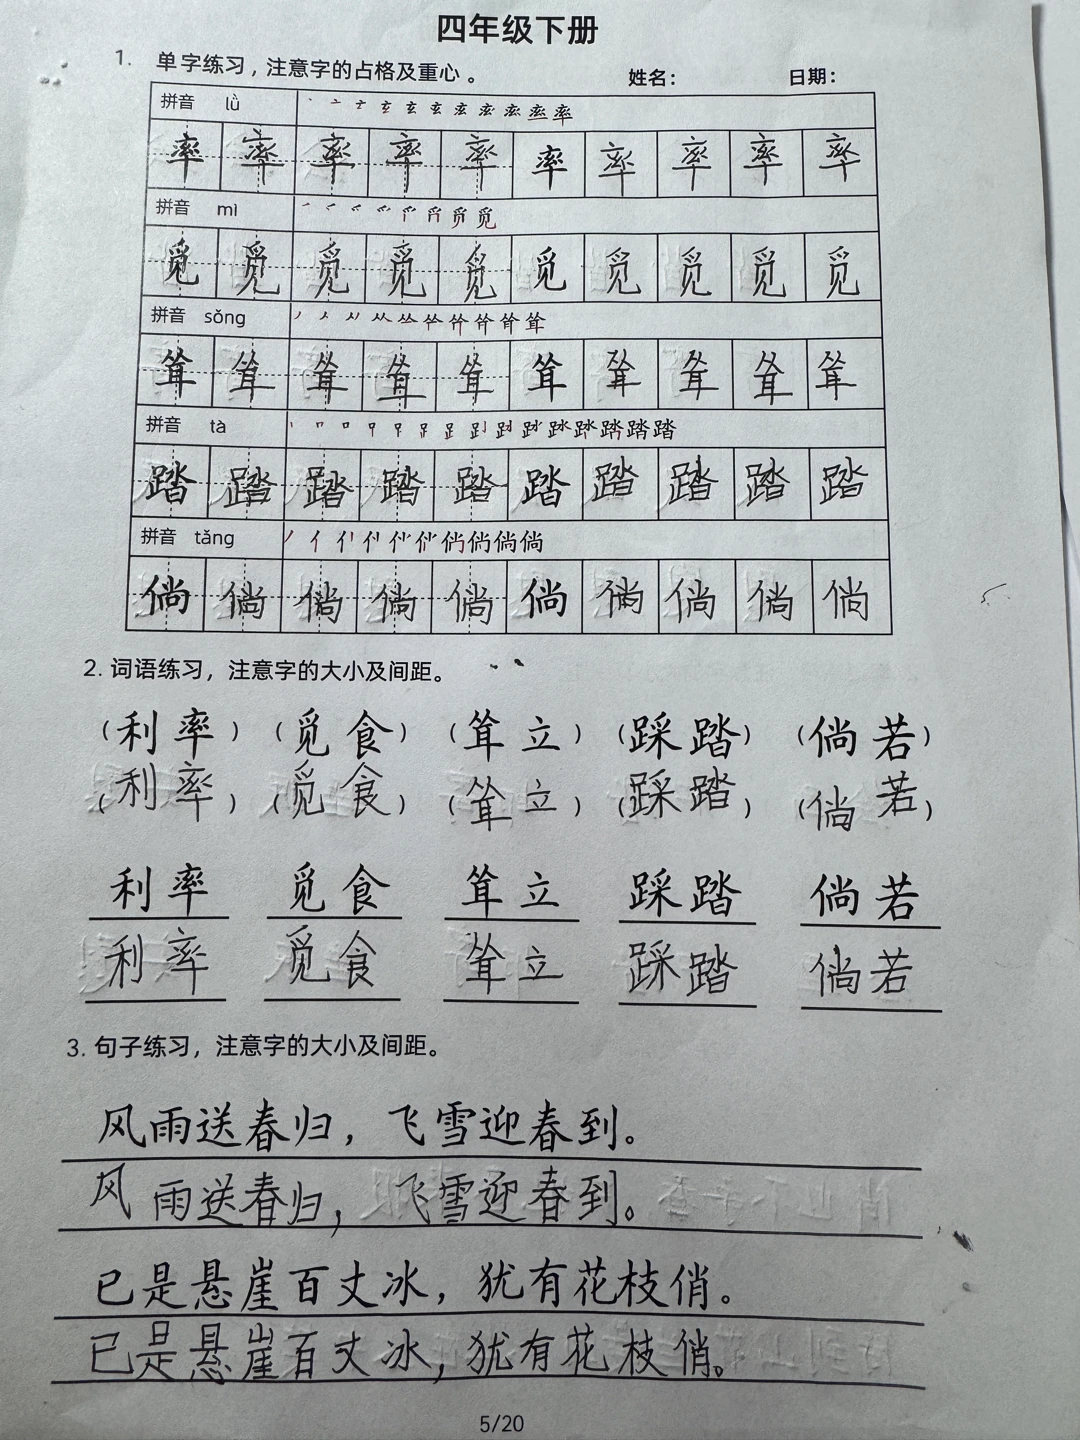 四年级下册
1. 单字练习，注意字的占格及重心。 姓名： 日期：
拼音 lǜ
率 率 率 率 率 率 率 率 率 率
拼音 mì
觅 觅 觅 觅 觅 觅 觅 觅 觅 觅
拼音 sǒng
耸 耸 耸 耸 耸 耸 耸 耸 耸 耸
拼音 tà
踏 踏 踏 踏 踏 踏 踏 踏 踏 踏
拼音 tǎng
倘 倘 倘 倘 倘 倘 倘 倘 倘 倘
2. 词语练习，注意字的大小及间距。
（利率）（觅食）（耸立）（踩踏）（倘若）
（利率）（觅食）（耸立）（踩踏）（倘若）
利率 觅食 耸立 踩踏 倘若
利率 觅食 耸立 踩踏 倘若
3. 句子练习，注意字的大小及间距。
风雨送春归，飞雪迎春到。
风雨送春归，飞雪迎春到。
已是悬崖百丈冰，犹有花枝俏。
已是悬崖百丈冰，犹有花枝俏。
5/20